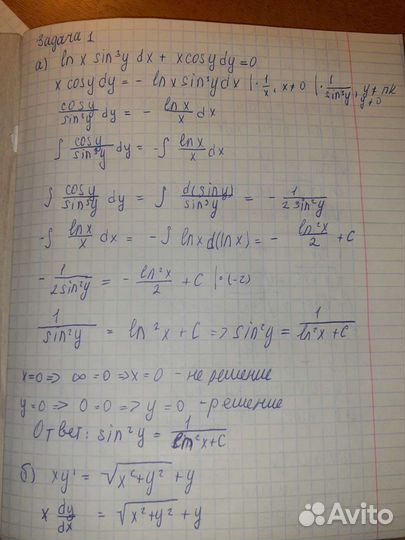 Задача 1
а) ln x sin³y dx + x cosy dy = 0
x cosy dy = - ln x sin³y dx | · 1/x, x ≠ 0 | · 1/sin³y, y ≠ πk
y ≠ 0
cosy/sin³y dy = - ln x/x dx
∫ cosy/sin³y dy = -∫ ln x/x dx
∫ cosy/sin³y dy = ∫ d(siny)/sin³y = - 1/2sin²y
-∫ ln x/x dx = -∫ ln x d(ln x) = - ln²x/2 + C
- 1/2sin²y = - ln²x/2 + C | · (-2)
1/sin²y = ln²x + C => sin²y = 1/ln²x + C
x=0 => ∞ = 0 => x = 0 - не решение
y=0 => 0=0 => y = 0 - решение
Ответ: sin²y = 1/ln²x+C
б) xy' = √x²+y² + y
x dy/dx = √x²+y² + y
Avito